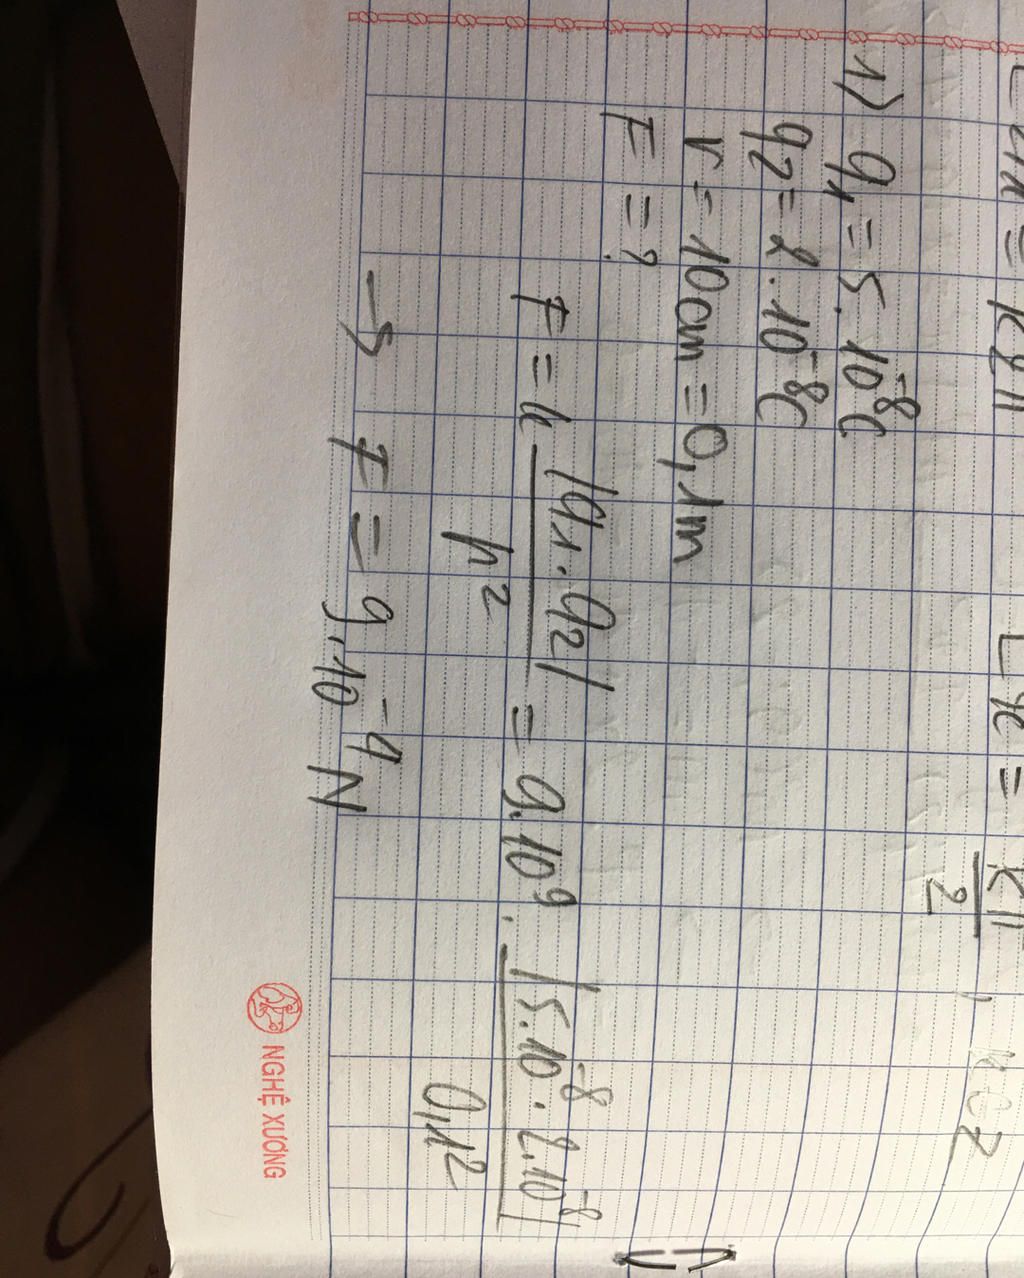 x = kπ
x = kπ/2, k∈Z
1) q₁ = 5.10⁻⁸C
q₂ = 2.10⁻⁸C
r = 10cm = 0,1m
F = ?
F = k |q₁.q₂| / r² = 9.10⁹. |5.10⁻⁸.2.10⁻⁸| / 0,1²
→ F = 9.10⁻⁴N
NGHỆ XƯƠNG